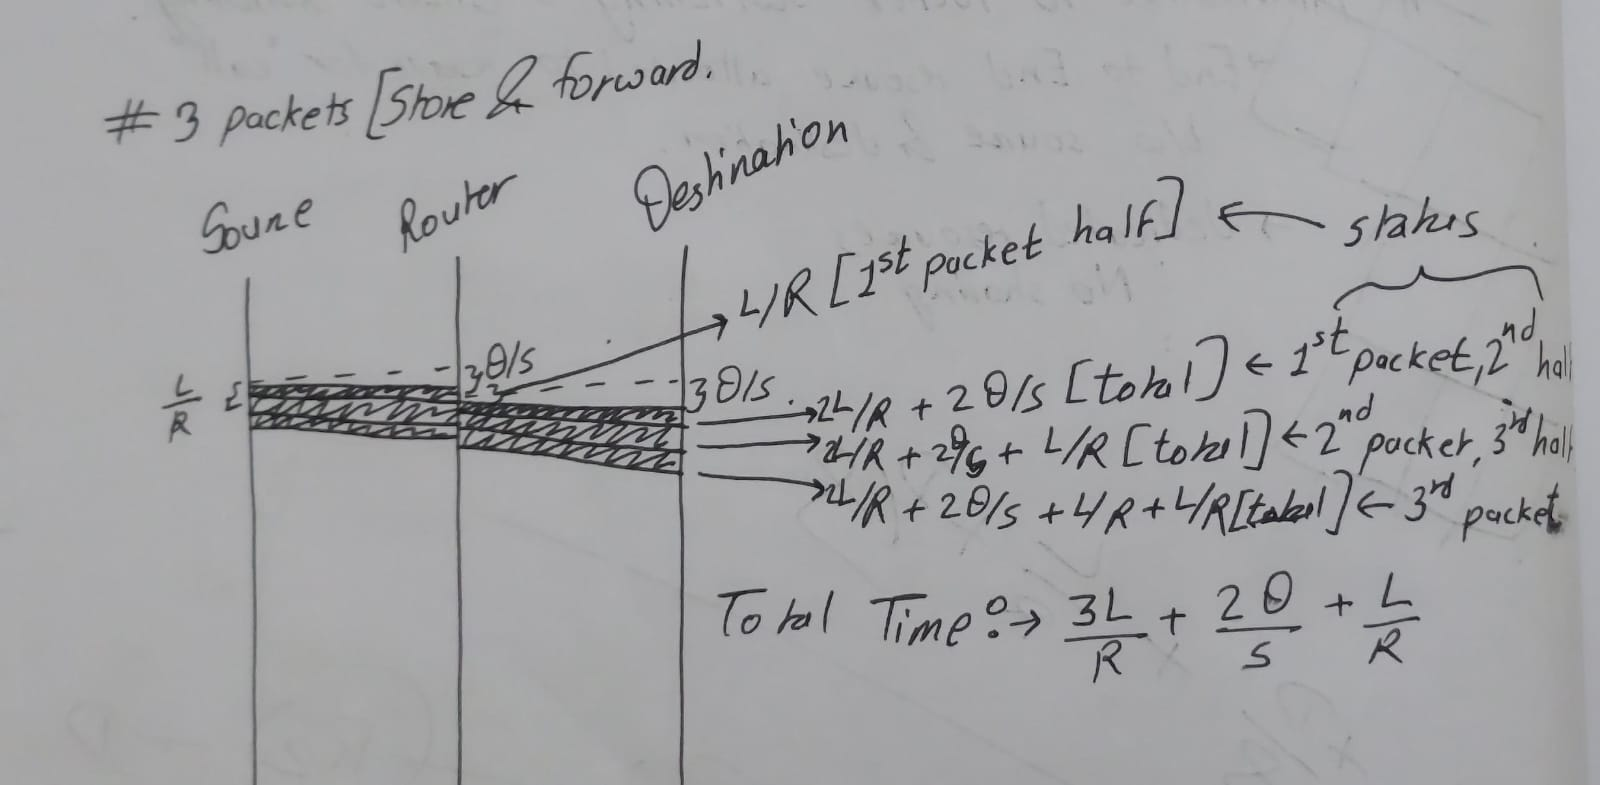 # 3 packets [Store & forward.
Sourse Router Destination
L/R [1st packet half] ← status
θ/s
L/R
3 θ/s.
2L/R + 2θ/s [total] ← 1st packet, 2nd hal
2L/R + 2θ/s + L/R [total] ← 2nd packet, 3rd half
2L/R + 2θ/s + L/R + L/R [total] ← 3rd packet
Total Time :→ 3L/R + 2θ/s + L/R